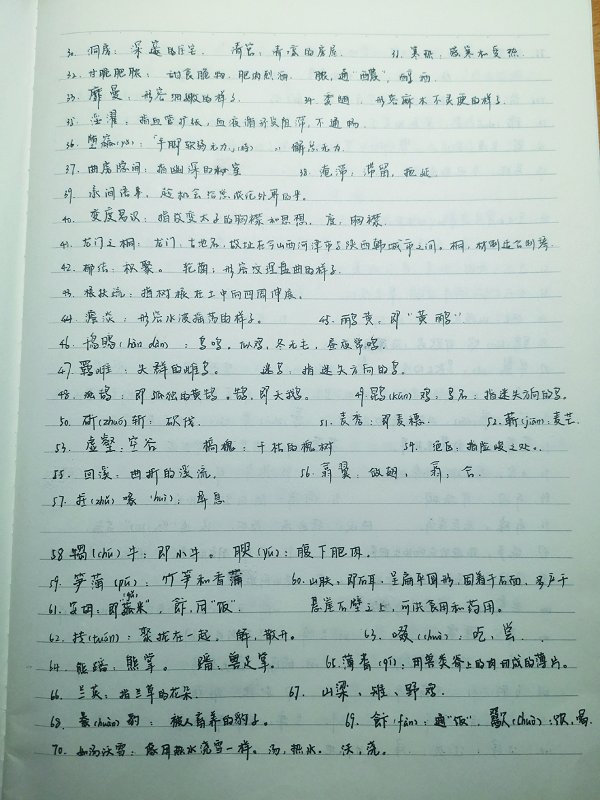 30. 洞房：深邃的住宅。 清宫，清凉的房屋 31. 寒热，感寒和受热
32. 甘脆肥脓：可食脆物，肥肉烈酒 脓，通"醲"，
33. 靡曼：形容细嫩的样子 34. 形容麻木不灵便的样子
35. 淫濯：指血管扩张，血液循环受阻滞，不通畅
36. 堕窳(yǔ)：手脚软弱无力 懈怠无力
37. 曲房隐间：指幽深的秘室 38. 淹滞：滞留，拖延
39. 承间语事，趁机会
40. 变度易识：指改变太子的胸襟和思想。度，胸襟
41. 龙门之桐：龙门，古地名，故址在今山西河津市与陕西韩城市之间。桐，
42. 郁结：积聚。 轮菌：形容纹理盘曲的样子。
43. 根扶疏：指树根在土中向四周伸展。
44. 澹淡：形容水波摇荡的样子。 45. 鹂黄：即"黄鹂"
46. 鳱鴠(hàn dàn)：鸟鸣，似鸡，冬无毛，昼夜常鸣。
47. 羁雌：失群的雌鸟。 迷鸟：指迷失方向的鸟。
48. 鹄：即孤独的黄鹄。鹄，即天鹅。 49. 鹍(kūn)鸡：鸟名：指迷失方向的鸟。
50. 斫(zhuó)斩：砍伐。 51. 麦秀：即麦穗。 52. 蔪(jiān)：麦芒。
53. 虚壑：空谷 槁槐：干枯的槐树 54. 指险峻之处。
55. 回溪：曲折的溪流。 56. 翕翼：敛翅， 翕，合。
57. 拄(zhǔ)喙(huì)：鼻息
58. 犓(chú)牛：即小牛。 腴(yú)：腹下肥肉。
59. 笋蒲(pú)：竹笋和香蒲 60. 山肤，即石耳，呈扁平圆形，固着于石面，多产于
61. 安胡：即"菰米"，飰，同"饭"。 悬崖石壁之上，可供食用和药用。
62. 抟(tuán)：聚拢在一起。 解，散开。 63. 啜(chuò)：吃，尝
64. 熊蹯：熊掌。 蹯：兽足掌。 65. 薄耆(qí)：用兽类脊上的肉切成的薄片。
66. 兰英：指兰草的花朵 67. 山梁，雉，野鸡
68. 豢(huàn)豹：被人畜养的豹子。 69. 飰(fàn)：通"饭"，歠(chuò)：饮，喝
70. 如汤沃雪：像用热水浇雪一样。汤，热水。 沃，浇。